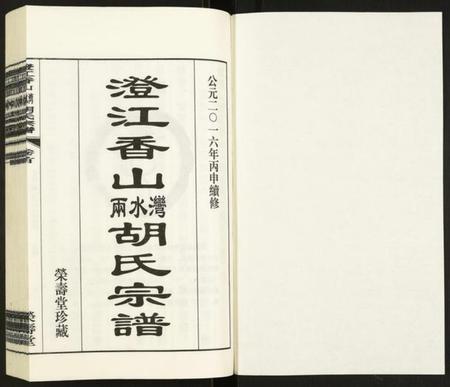 公元二〇一六年丙申續修
澄江香山
兩水灣
胡氏宗譜
榮壽堂珍藏
卷首
榮壽堂